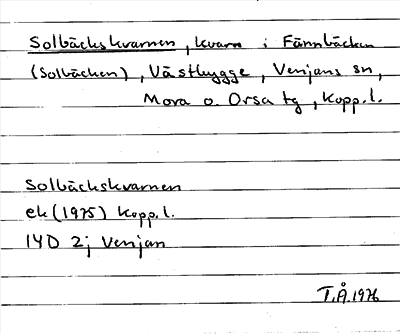 Solbäckskvarnen, kvarn i Fännbäcken
(Solbäcken), Västbygge, Venjans sn,
Mora o. Orsa tg, Kopp.l.
Solbäckskvarnen
ek (1975) Kopp.l.
14D 2j Venjan
T.Å. 1976